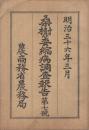 明治三十六年三月
桑樹萎縮病調査報告 第七號
農商務省農務局